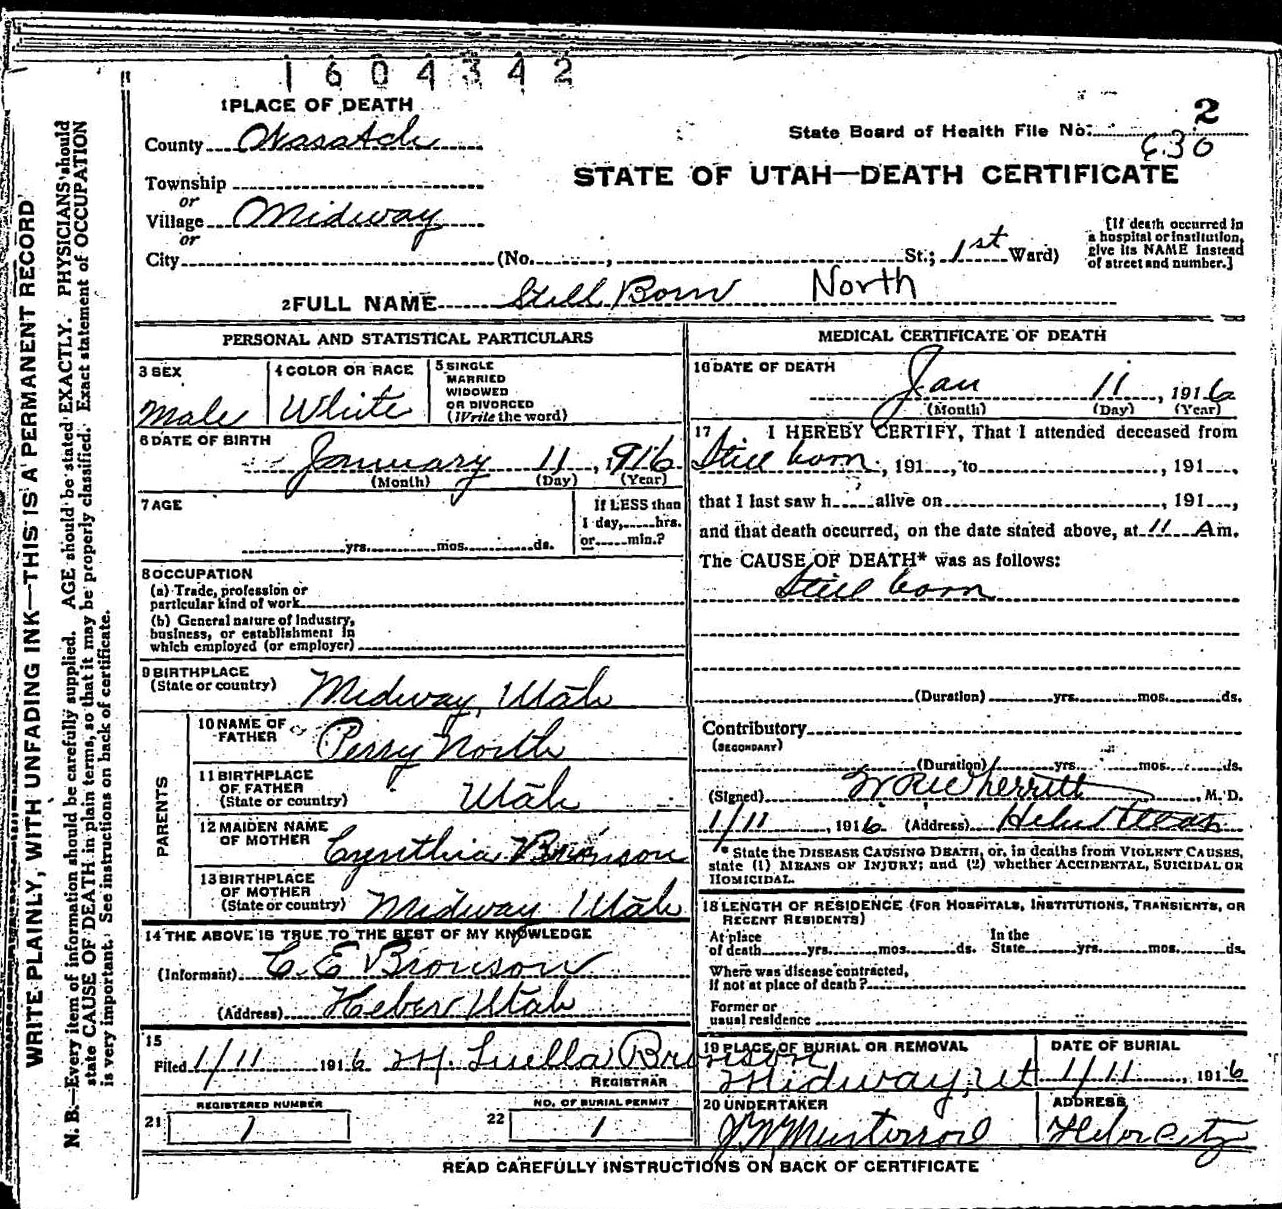 1604342
1 PLACE OF DEATH
2
State Board of Health File No. 630
County Wasatch
STATE OF UTAH—DEATH CERTIFICATE
Township
or
Village Midway
or
City (No. , St.; 1st Ward)
[If death occurred in
a hospital or institution,
give its NAME instead
of street and number.]
2 FULL NAME Still Born North
PERSONAL AND STATISTICAL PARTICULARS
3 SEX
Male
4 COLOR OR RACE
White
5 SINGLE
MARRIED
WIDOWED
OR DIVORCED
(Write the word)
6 DATE OF BIRTH
January 11, 1916
(Month) (Day) (Year)
7 AGE
yrs. mos. ds.
If LESS than
1 day, hrs.
or min.?
8 OCCUPATION
(a) Trade, profession or
particular kind of work
(b) General nature of industry,
business, or establishment in
which employed (or employer)
9 BIRTHPLACE
(State or country) Midway, Utah
PARENTS
10 NAME OF
FATHER Perry North
11 BIRTHPLACE
OF FATHER
(State or country) Utah
12 MAIDEN NAME
OF MOTHER Cynthia Bronson
13 BIRTHPLACE
OF MOTHER
(State or country) Midway Utah
14 THE ABOVE IS TRUE TO THE BEST OF MY KNOWLEDGE
(Informant) C E Bronson
(Address) Heber Utah
15
Filed 1/11 1916 M. Luella Bronson
REGISTRAR
REGISTERED NUMBER
21 1
NO. OF BURIAL PERMIT
22 1
MEDICAL CERTIFICATE OF DEATH
16 DATE OF DEATH
Jan 11, 1916
(Month) (Day) (Year)
17 I HEREBY CERTIFY, That I attended deceased from
Still born, 191 , to , 191 ,
that I last saw h alive on , 191 ,
and that death occurred, on the date stated above, at 11 Am.
The CAUSE OF DEATH* was as follows:
Still born
(Duration) yrs. mos. ds.
Contributory
(SECONDARY)
(Duration) yrs. mos. ds.
(Signed) , M. D.
1/11, 1916 (Address) Heber
* State the DISEASE CAUSING DEATH, or, in deaths from VIOLENT CAUSES,
state (1) MEANS OF INJURY; and (2) whether ACCIDENTAL, SUICIDAL OR
HOMICIDAL.
18 LENGTH OF RESIDENCE (FOR HOSPITALS, INSTITUTIONS, TRANSIENTS, OR
RECENT RESIDENTS)
At place
of death yrs. mos. ds.
In the
State yrs. mos. ds.
Where was disease contracted,
if not at place of death?
Former or
usual residence
19 PLACE OF BURIAL OR REMOVAL
Midway, Ut
DATE OF BURIAL
1/11, 1916
20 UNDERTAKER
ADDRESS
Heber City
READ CAREFULLY INSTRUCTIONS ON BACK OF CERTIFICATE
WRITE PLAINLY, WITH UNFADING INK—THIS IS A PERMANENT RECORD
N. B.—Every item of information should be carefully supplied. AGE should be stated EXACTLY. PHYSICIANS should
state CAUSE OF DEATH in plain terms, so that it may be properly classified. Exact statement of OCCUPATION
is very important. See instructions on back of certificate.